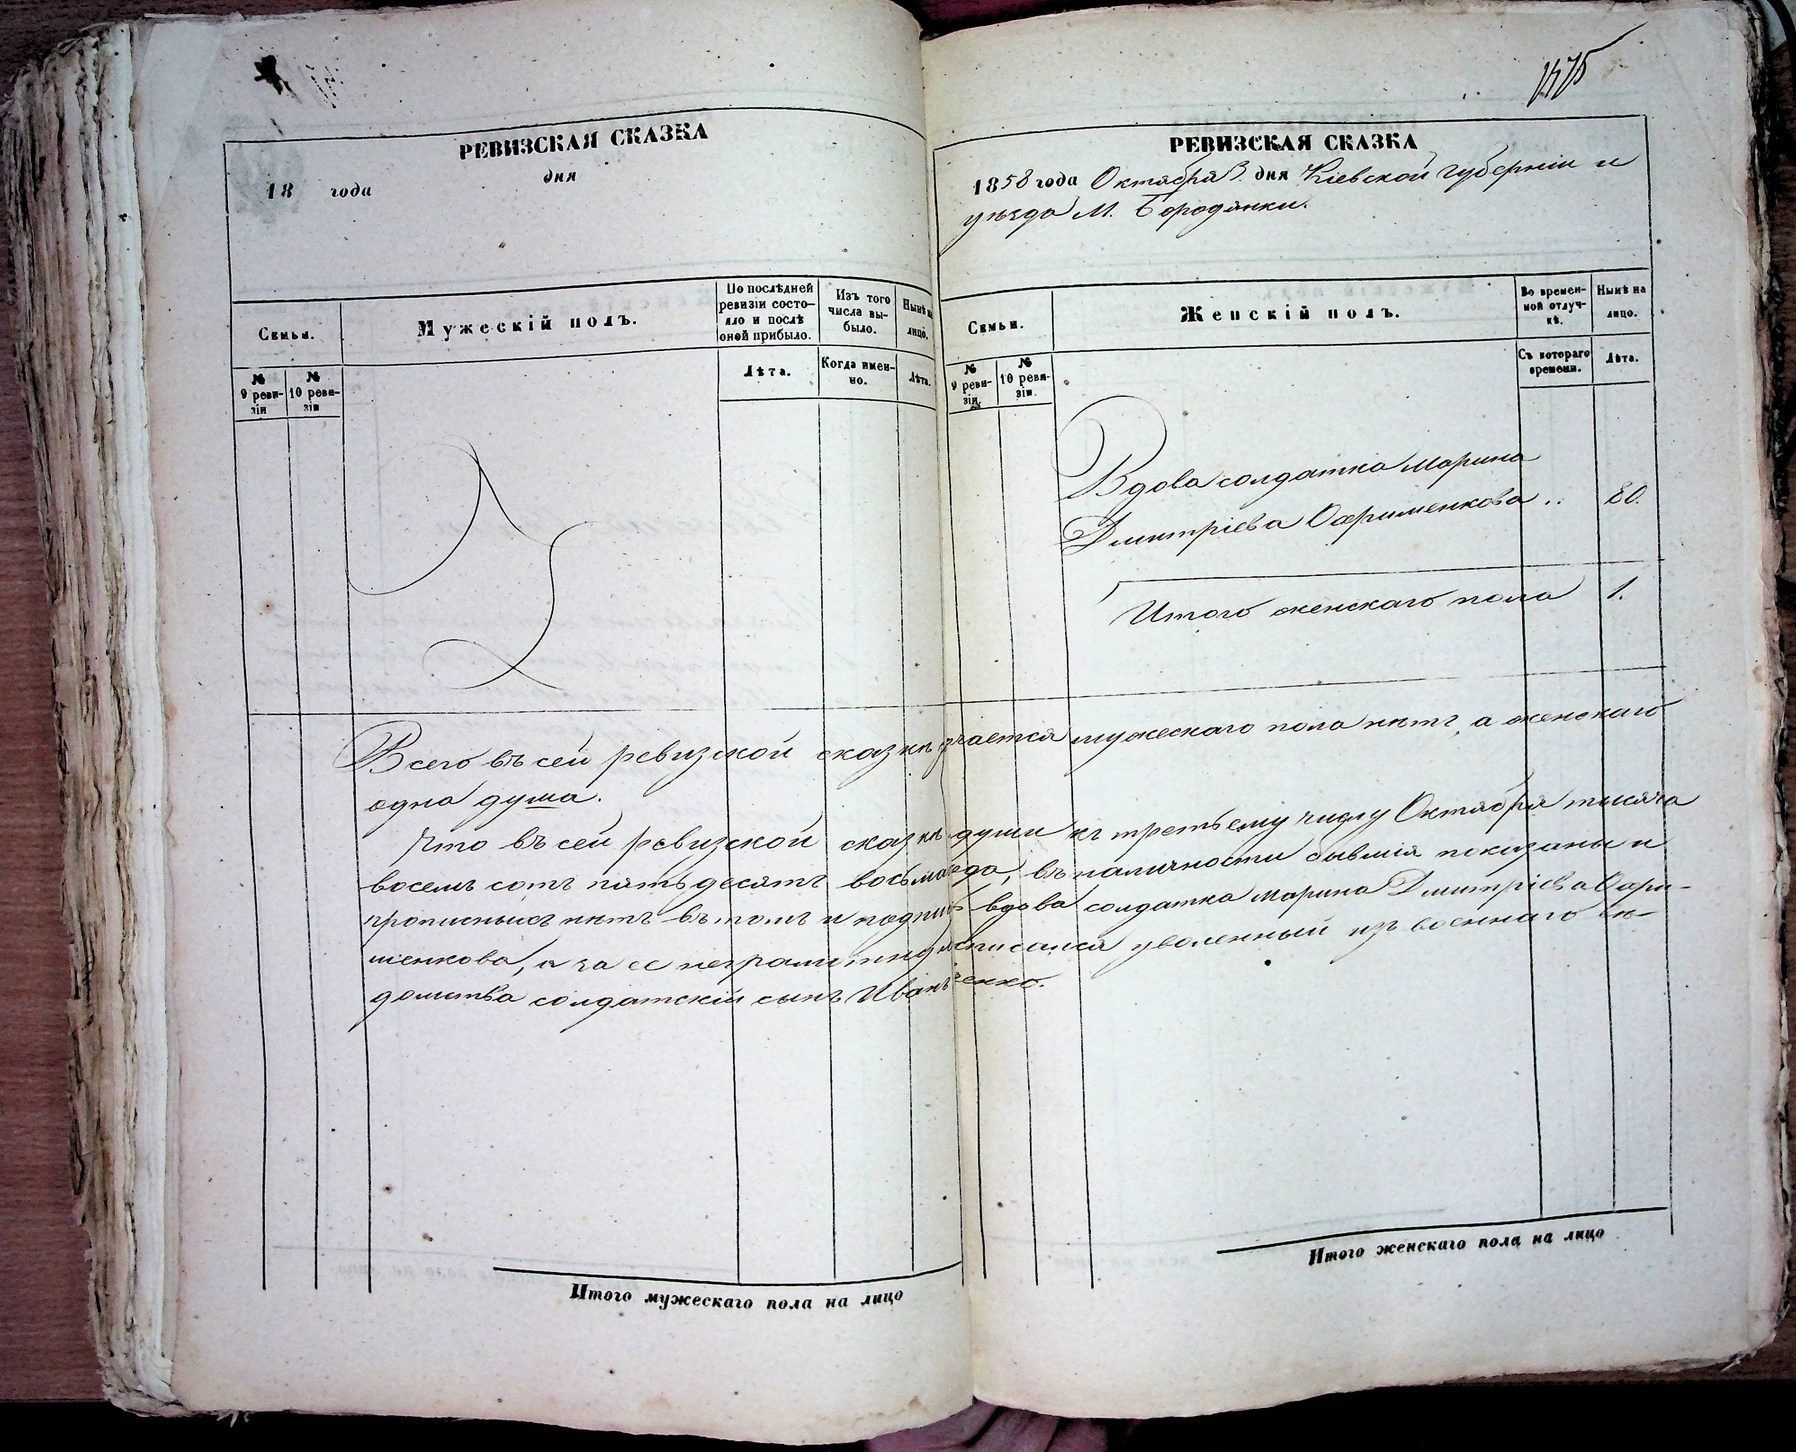 РЕВИЗСКАЯ СКАЗКА
18 года дня
Семьи.
Мужескій полъ.
По послѣдней ревизіи состо-
яло и послѣ оной прибыло.
Изъ того числа вы-
было.
Нынѣ на лицо.
№ 9 реви-
зіи
№ 10 реви-
зіи
Лѣта.
Когда имен-
но.
Лѣта.
РЕВИЗСКАЯ СКАЗКА
1858 года Октября 3. дня Кіевской губерніи и
уѣзда М. Бородянки.
Семьи.
Женскій полъ.
Во времен-
ной отлуч-
кѣ.
Нынѣ на
лицо.
№ 9 реви-
зіи.
№ 10 реви-
зіи.
Съ котораго
времени.
Лѣта.
Вдова солдатка Марина
Дмитріева Охрименкова .. 80.
Итого женскаго пола 1.
Всего въ сей ревизской сказкѣ мужескаго пола нѣтъ, а женскаго
одна душа.
Что въ сей ревизской сказкѣ души къ третьему числу Октября тысяча
восемь сотъ пятьдесятъ восьмаго года, въ наличности бывшія показаны и
прописныхъ нѣтъ въ томъ и вдова солдатка Марина Дмитріева Охри-
менкова, а за ее уволенный изъ военнаго вѣ-
домства солдатскій сынъ
Итого мужескаго пола на лицо
Итого женскаго пола на лицо